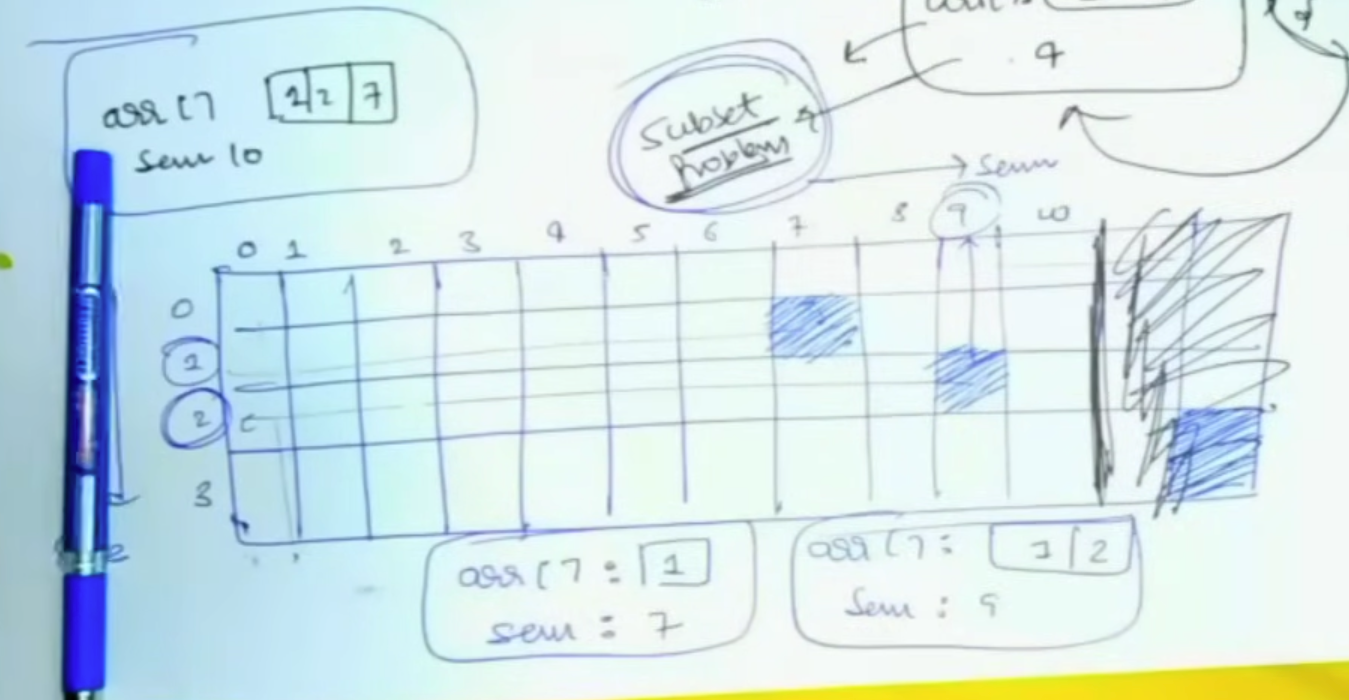 arr [ ] 1 2 7
sum 10
Subset
Problem
9
→ Sum
0 1 2 3 4 5 6 7 8 9 10
0
1
2
3
arr [ ] : 1
sum : 7
arr [ ] : 1 2
Sum : 9